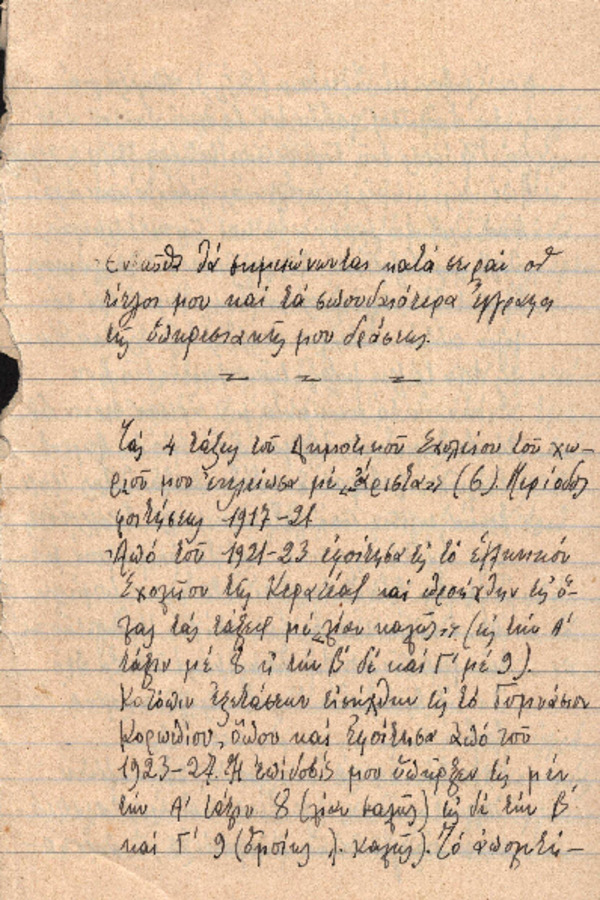 Ἐνταῦθα θά σημειώνωνται κατά σειράν οἱ
τίτλοι μου καί τά σπουδαιότερα ἔγγραφα
τῆς ὑπηρεσιακῆς μου δράσεως.
Τάς 4 τάξεις τοῦ Δημοτικοῦ Σχολείου τοῦ χω-
ριοῦ μου ἐτελείωσα μέ „ἄριστα" (6). Περίοδος
φοιτήσεως 1917-21
Ἀπό τοῦ 1921-23 ἐφοίτησα εἰς τό ἑλληνικόν
Σχολεῖον τῆς Κερατέας καί προήχθην εἰς ὅ-
λας τάς τάξεις μέ „λίαν καλῶς" (εἰς τήν Α'
τάξιν μέ 8 εἰς τήν Β' δέ καί Γ' μέ 9).
Κατόπιν ἐξετάσεων εἰσήχθην εἰς τό Γυμνάσιον
Κορωπίου, ὅπου καί ἐφοίτησα ἀπό τοῦ
1923-27. Ἡ ἐπίδοσίς μου ὑπῆρξεν εἰς μέν
τήν Α' τάξιν 8 (λίαν καλῶς) εἰς δέ τήν Β'
καί Γ' 9 (ὁμοίως λ. καλῶς). Τό ἀπολυτή-